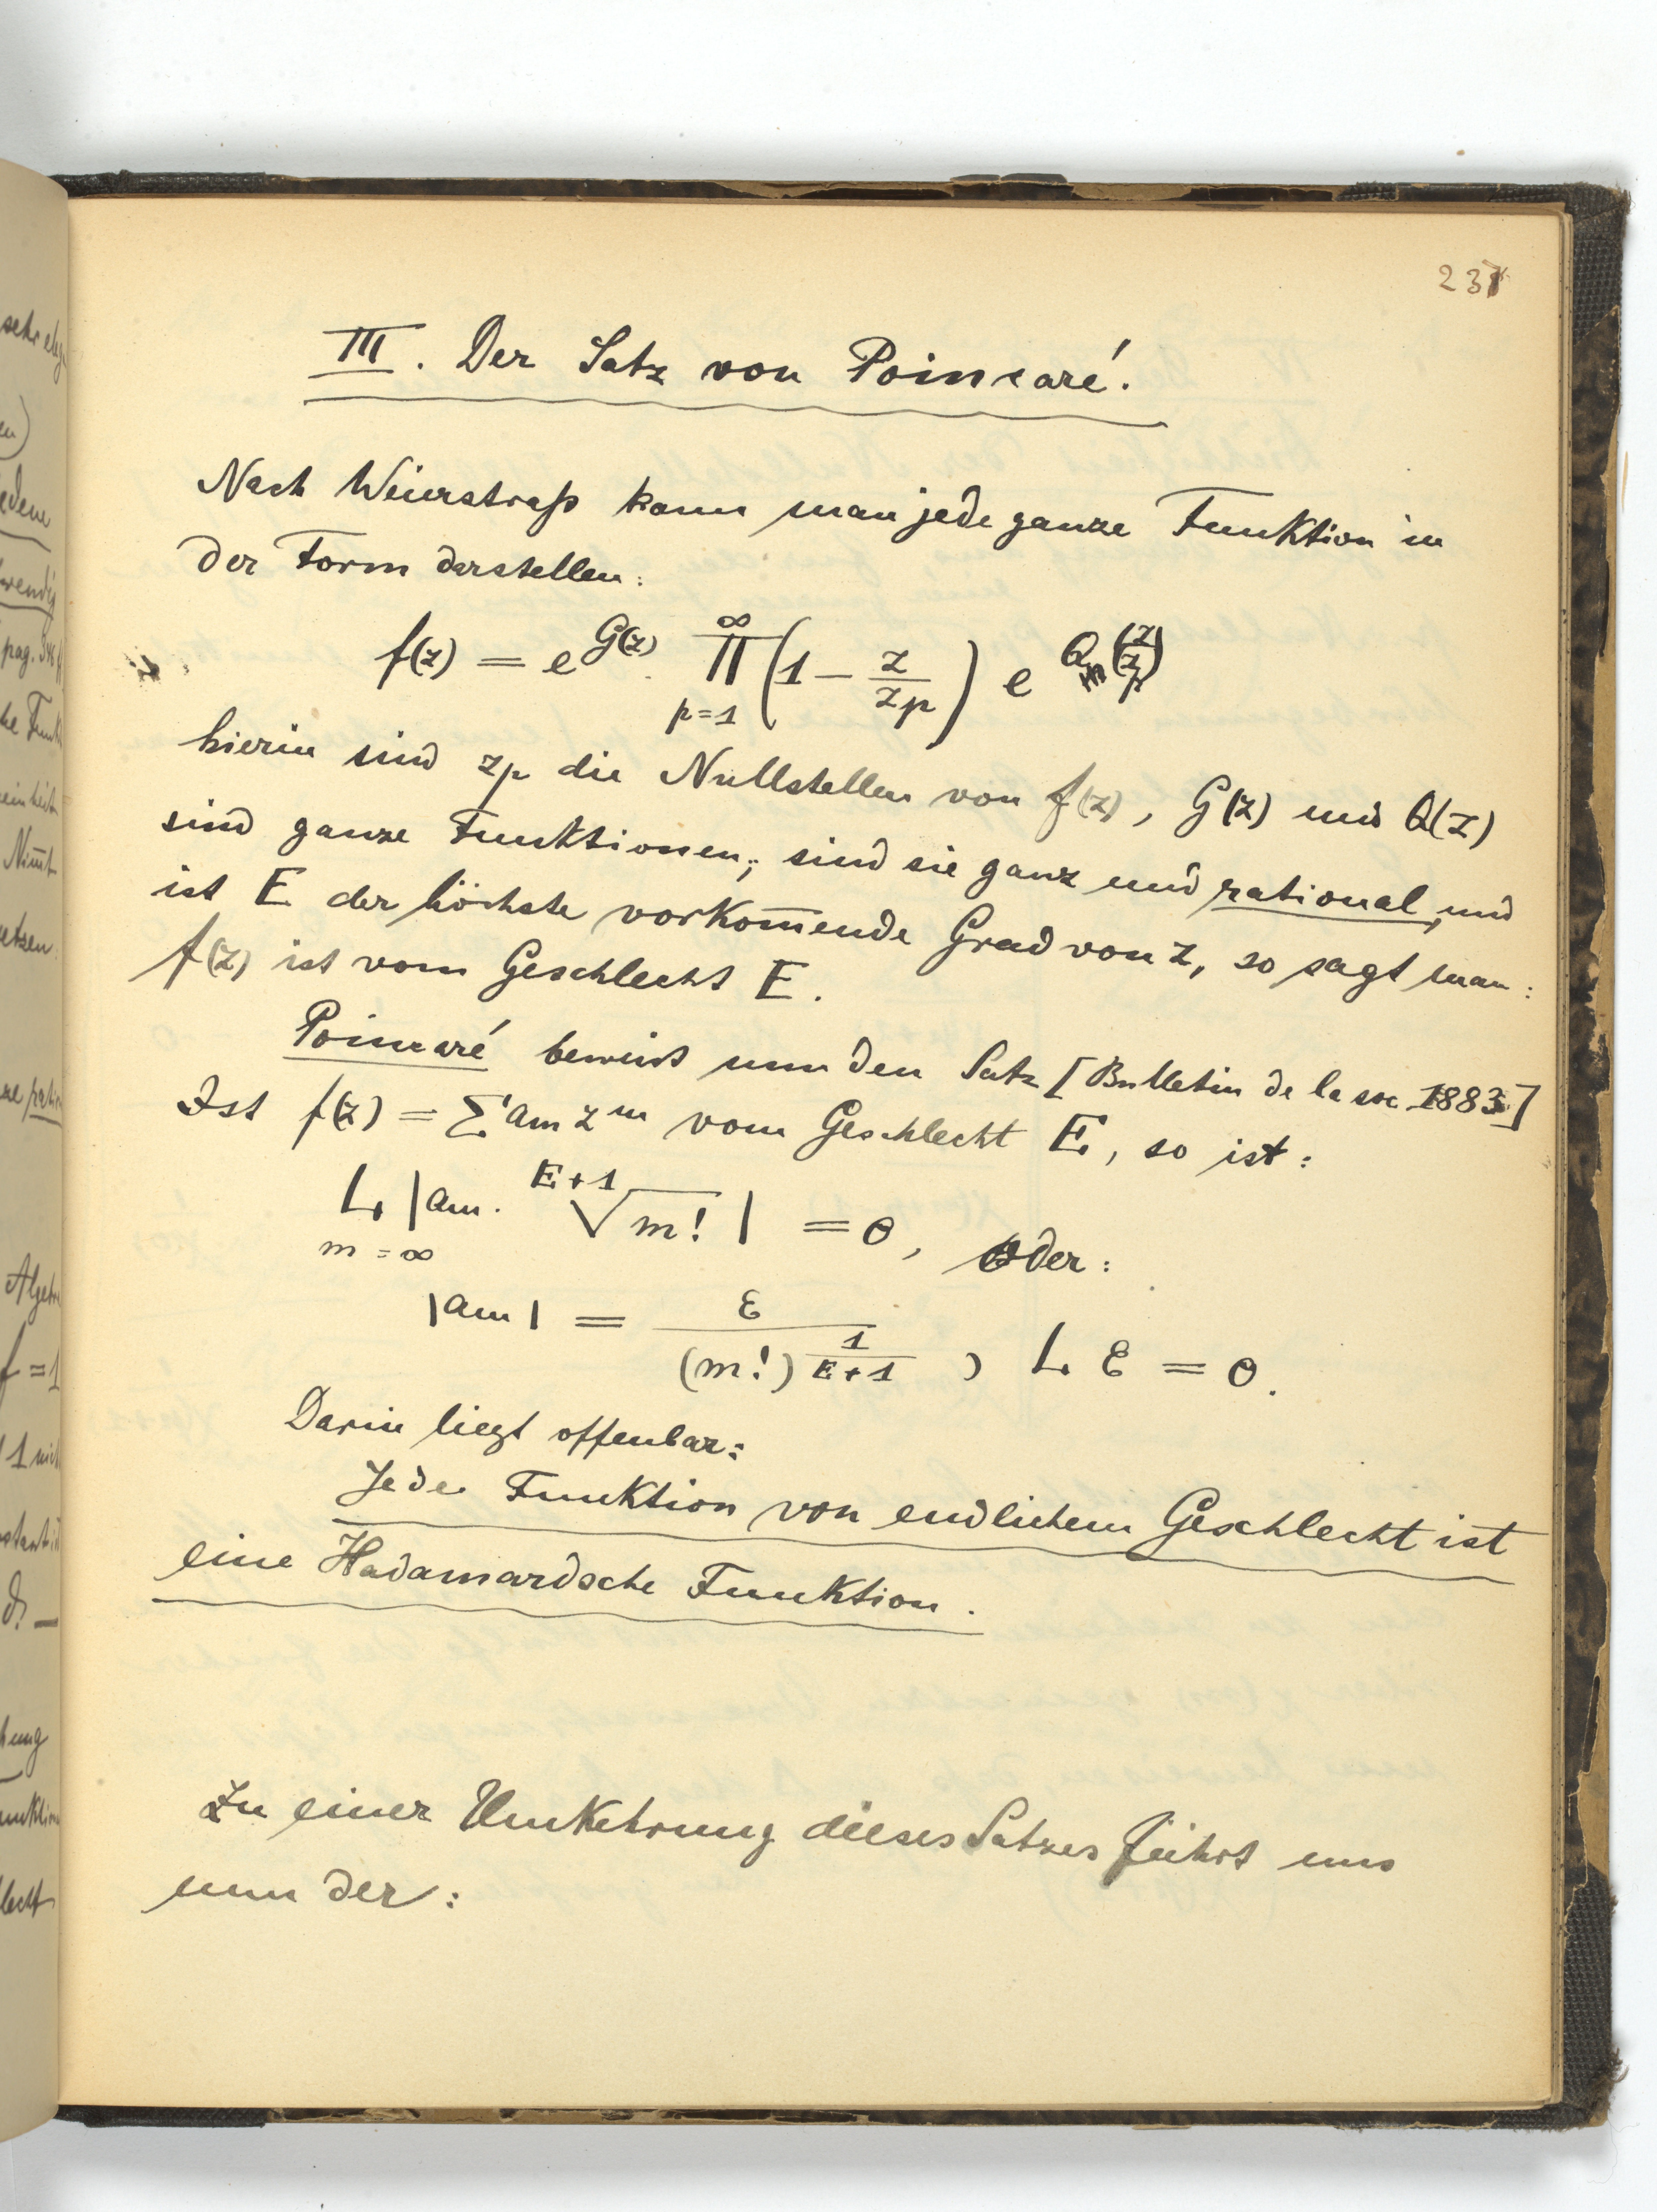 237
III. Der Satz von Poincaré.
Nach Weierstraß kann man jede ganze Funktion in
der Form darstellen:
f(z) = e^{G(z)} ∏_{p=1}^{∞} (1 − z/z_p) e^{Q(z/z_p)}
hierin sind z_p die Nullstellen von f(z), G(z) und Q(z)
sind ganze Funktionen; sind sie ganz und rational, und
ist E der höchste vorkom̅ende Grad von z, so sagt man:
f(z) ist vom Geschlecht E.
Poincaré beweist nun den Satz [Bulletin de la soc 1883]
Ist f(z) = Σ a_m z^m vom Geschlecht E, so ist:
L_{m=∞} |a_m · \sqrt[E+1]{m!}| = 0, oder:
|a_m| = ε / (m!)^{1/(E+1)} , L ε = 0.
Darin liegt offenbar:
Jede Funktion von endlichem Geschlecht ist
eine Hadamardsche Funktion.
Zu einer Umkehrung dieses Satzes führt uns
nun der: